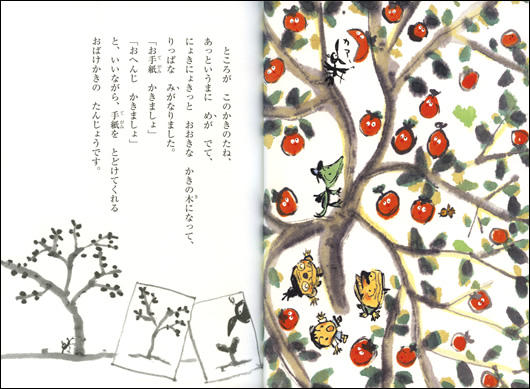 ところが このかきのたね、
あっというまに めが でて、
にょきにょきっと おおきな かきの木になって、
りっぱな みがなりました。
「お手紙 かきましょ」
「おへんじ かきましょ」
と、いいながら、手紙を とどけてくれる
おばけかきの たんじょうです。